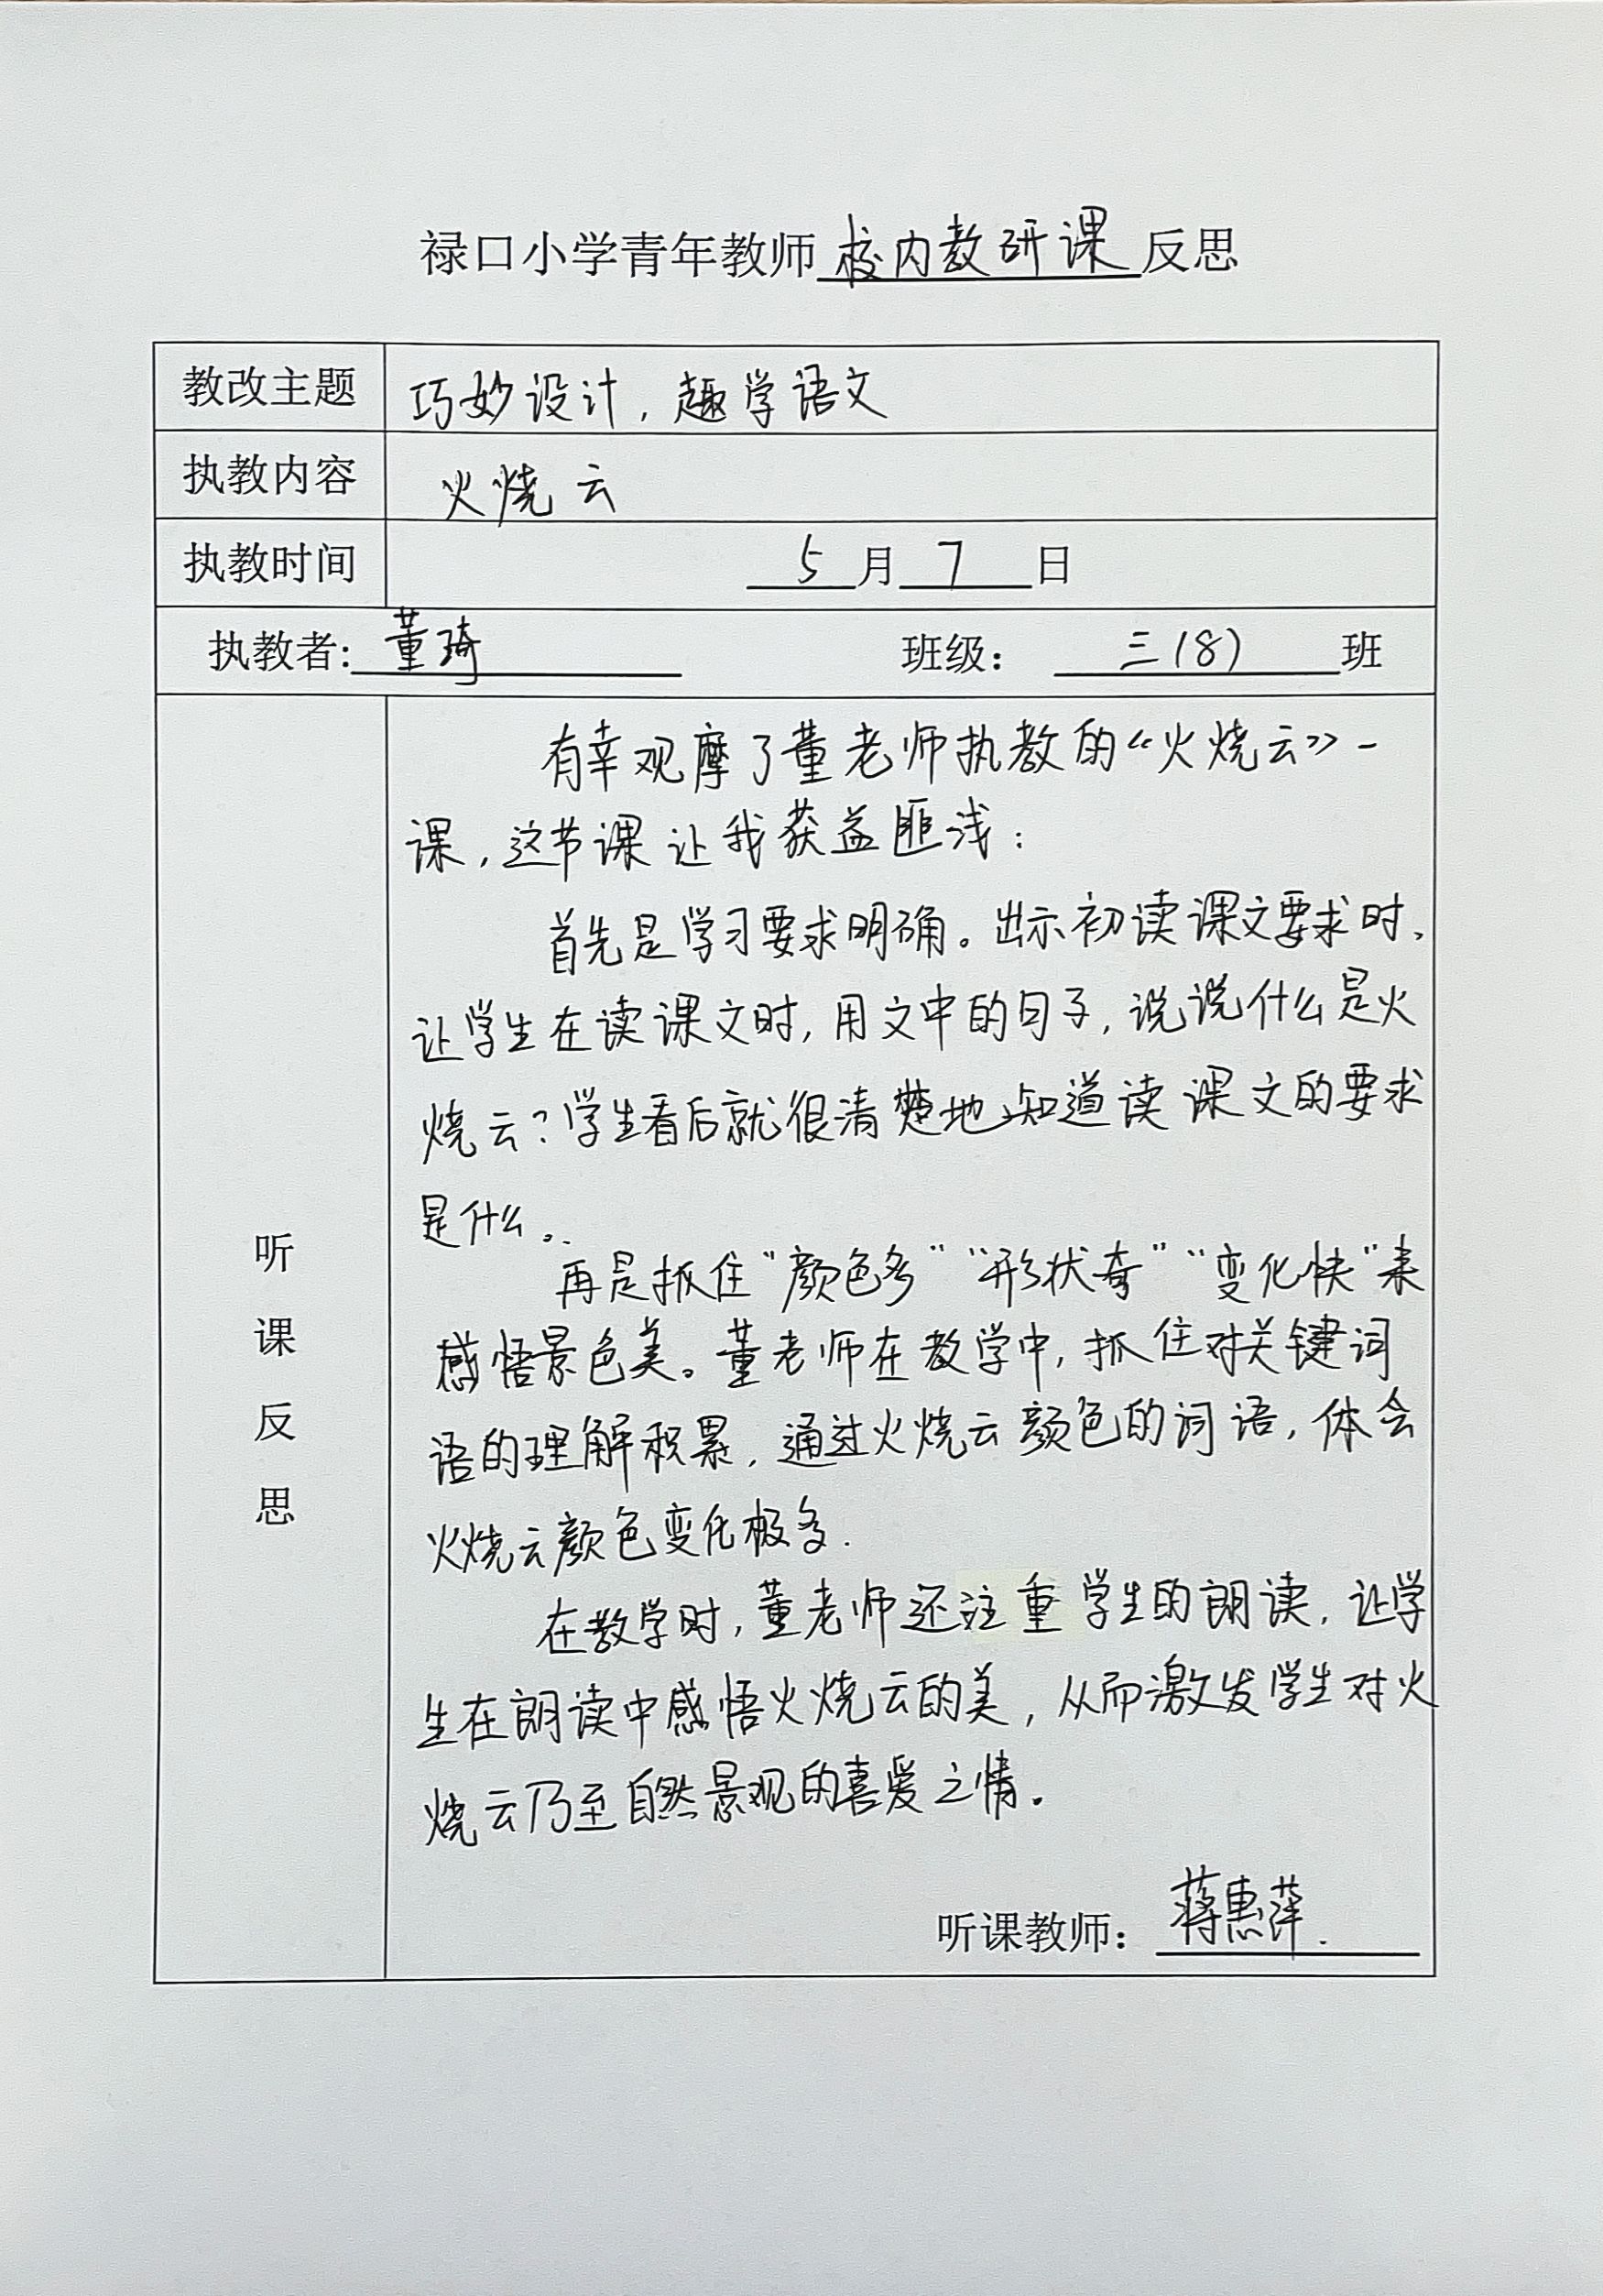 禄口小学青年教师校内教研课反思
教改主题 巧妙设计，趣学语文
执教内容 火烧云
执教时间 5月7日
执教者：董琦 班级：三(8)班
听课反思
有幸观摩了董老师执教的《火烧云》一
课，这节课让我获益匪浅：
首先是学习要求明确。出示初读课文要求时，
让学生在读课文时，用文中的句子，说说什么是火
烧云？学生看后就很清楚地知道读课文的要求
是什么。
再是抓住“颜色多”“形状奇”“变化快”来
感悟景色美。董老师在教学中，抓住对关键词
语的理解积累，通过火烧云颜色的词语，体会
火烧云颜色变化极多.
在教学时，董老师还注重学生的朗读，让学
生在朗读中感悟火烧云的美，从而激发学生对火
烧云乃至自然景观的喜爱之情。
听课教师：蒋惠萍.